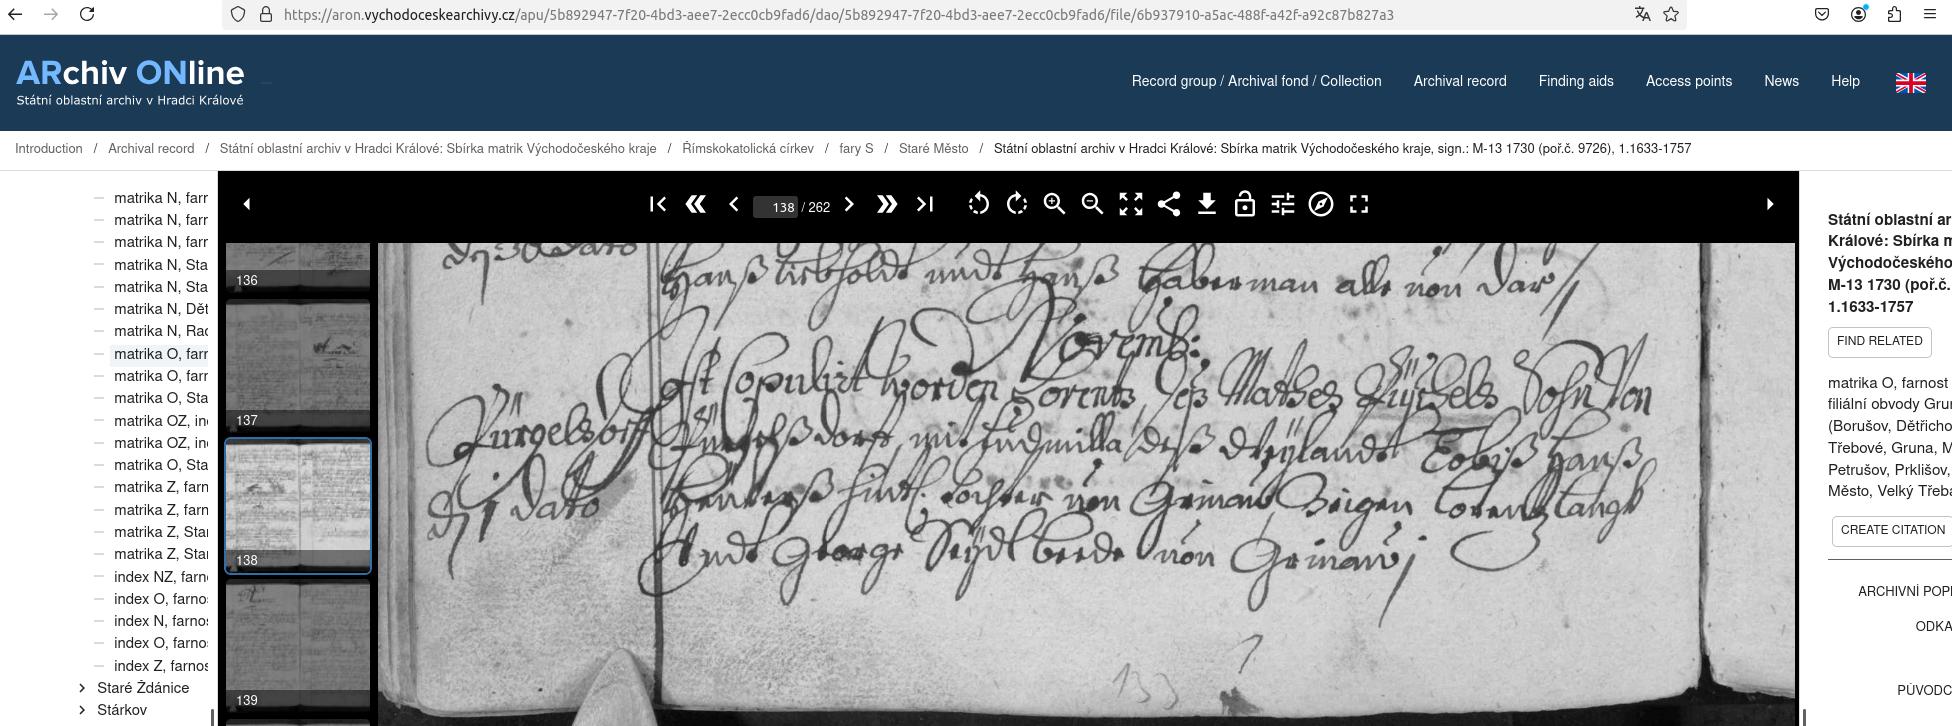 https://aron.vychodoceskearchivy.cz/apu/5b892947-7f20-4bd3-aee7-2ecc0cb9fad6/dao/5b892947-7f20-4bd3-aee7-2ecc0cb9fad6/file/6b937910-a5ac-488f-a42f-a92c87b827a3
ARchiv ONline
Státní oblastní archiv v Hradci Králové
Record group / Archival fond / Collection
Archival record
Finding aids
Access points
News
Help
Introduction / Archival record / Státní oblastní archiv v Hradci Králové: Sbírka matrik Východočeského kraje / Římskokatolická církev / fary S / Staré Město / Státní oblastní archiv v Hradci Králové: Sbírka matrik Východočeského kraje, sign.: M-13 1730 (poř.č. 9726), 1.1633-1757
matrika N, farr
matrika N, farr
matrika N, farr
matrika N, Sta
matrika N, Sta
matrika N, Dět
matrika N, Rad
matrika O, farr
matrika O, farr
matrika O, Sta
matrika OZ, ind
matrika OZ, ind
matrika O, Sta
matrika Z, farn
matrika Z, farn
matrika Z, Star
matrika Z, Star
index NZ, farn
index O, farnos
index N, farnos
index O, farnos
index Z, farnos
Staré Ždánice
Stárkov
138 / 262
136
137
138
139
dato
Hanß Liebholdt undt Hanß Haberman alle von Dar
Novemb:
Ist Copulirt worden Lorentz deß Mathes Sohn Von
Pürgelsdorff
Pürgelßdorf mit Ludmilla deß Weÿlandt Tobiß Hanß
d 1 dato
hint. tochter von Grünaw Zeigen Lorentz Langer
Undt George Seÿdl beede von Grünaw
133
Státní oblastní ar
Králové: Sbírka m
Východočeského
M-13 1730 (poř.č.
1.1633-1757
FIND RELATED
matrika O, farnost
filiální obvody Gru
(Borušov, Dětřicho
Třebové, Gruna, M
Petrušov, Prklišov,
Město, Velký Třeba
CREATE CITATION
ARCHIVNÍ POPI
ODKA
PŮVODC